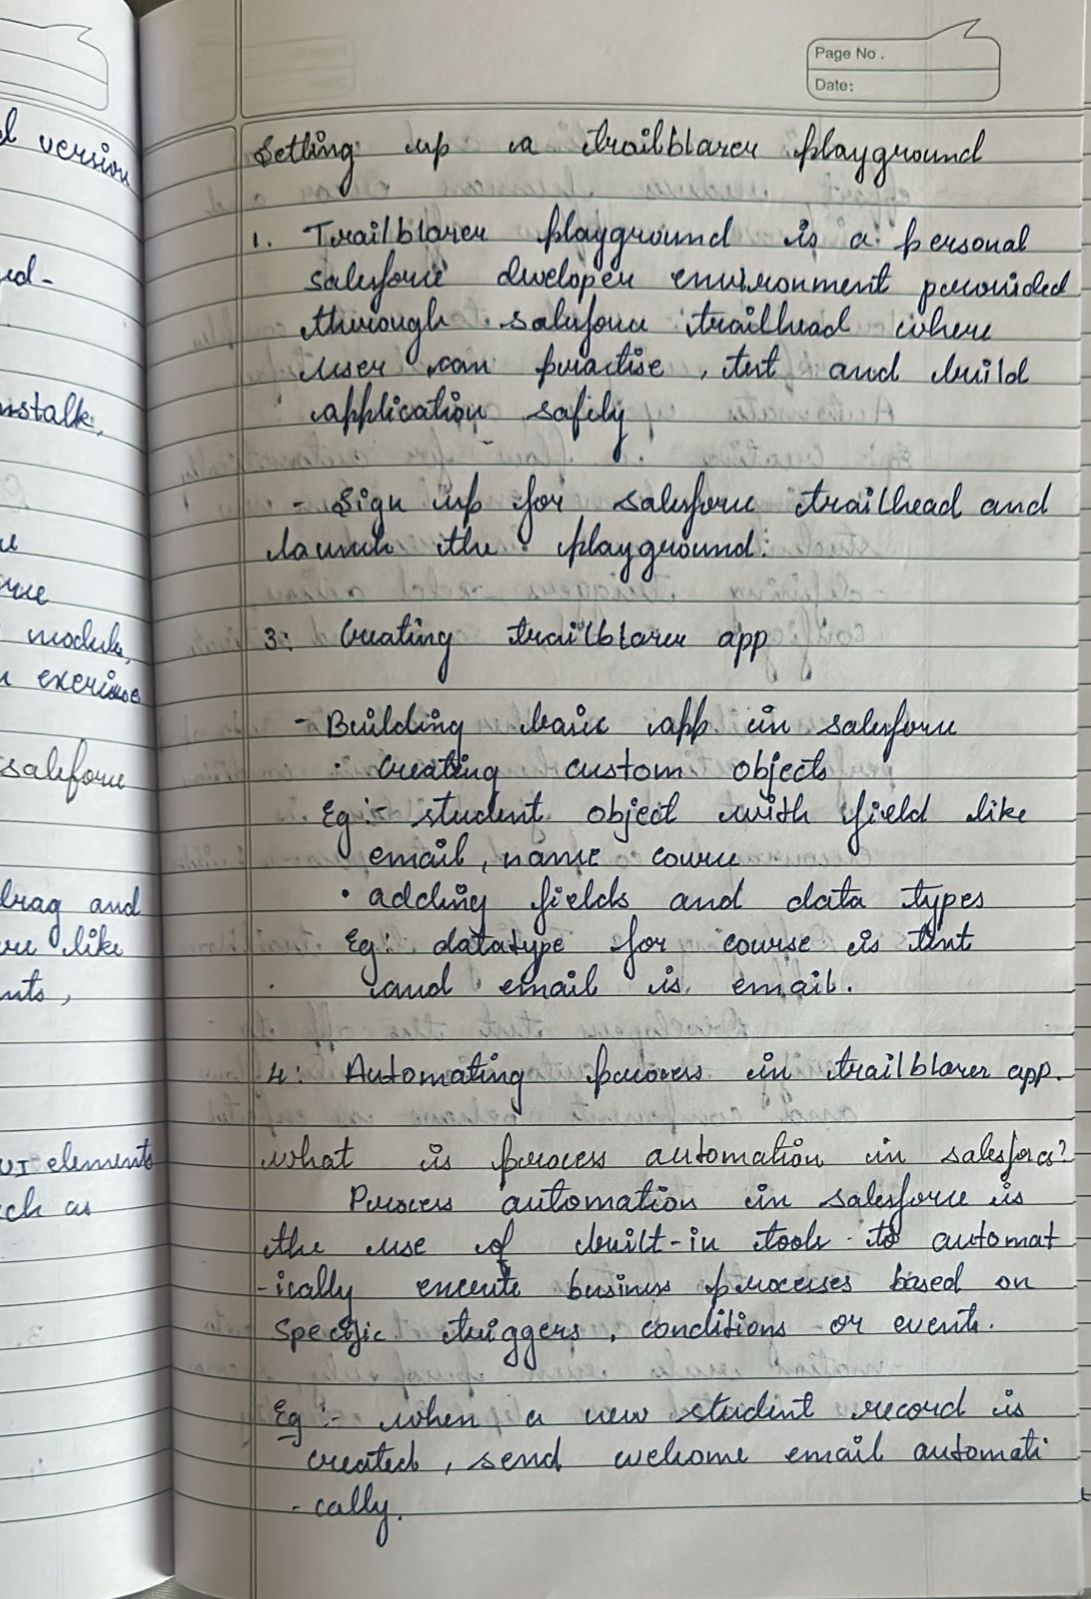 Page No.
Date:
Setting up a trailblazer playground
1. Trailblazer playground is a personal
salesforce dveloper environment provided
through salesforce trailhead where
user can practise, test and build
application safely
- Sign up for salesforce trailhead and
launch the playground.
3: Creating trailblazer app
- Building basic app in salesforce
· creating custom objects
Eg:- student object with field like
email, name course
• adding fields and data types
Eg: datatype for course is text
and email is email.
4: Automating process in trailblazer app.
what is process automation in salesforce?
Process automation in salesforce is
the use of built-in tools to automat
-ically execute business processes based on
specific triggers, conditions or events.
Eg:- when a new student record is
created, send welcome email automati
- cally.
l version
ed-
nstalk,
module,
exercise
salesforce
drag and
like
nts,
UI elements
ch as